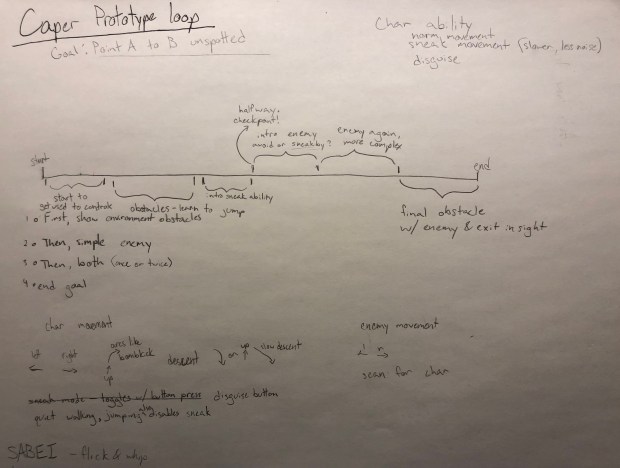 Caper Prototype loop
Goal: Point A to B unspotted
Char ability
norm movement
sneak movement (slower, less noise)
disguise
halfway
checkpoint!
intro enemy
avoid or sneak by?
enemy again,
more complex
start
end
start to
get used to controls
obstacles - learn to jump
intro sneak ability
final obstacle
w/ enemy & exit in sight
1 First, show environment obstacles
2 Then, simple enemy
3 Then, both (once or twice)
4 end goal
char movement
left
right
up
descent
or
up
slow descent
enemy movement
l r
scan for char
sneak mode - toggles w/ button press disguise button
quiet walking, jumping disables sneak
SABEI - flick &